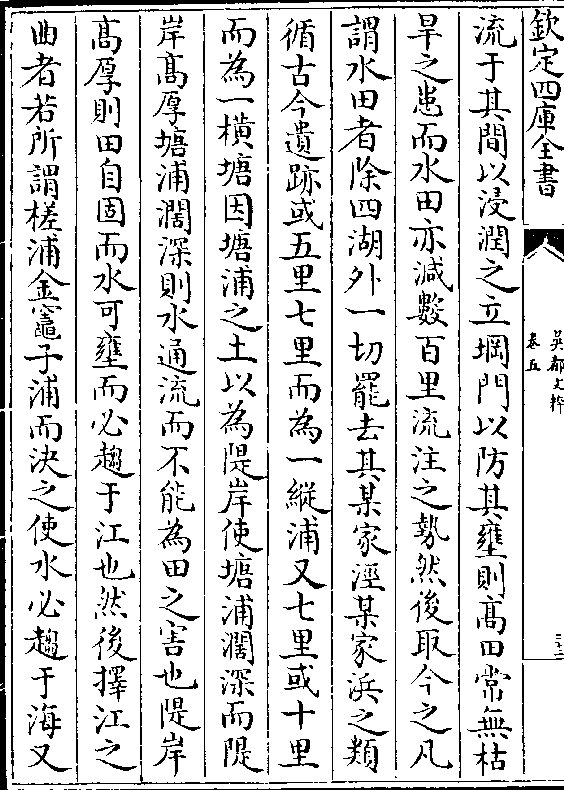 欽定四庫全書
吳都文粹
卷五
三十二
流于其間以浸潤之立堈門以防其壅則髙田常無枯
旱之患而水田亦減數百里流注之勢然後取今之凡
謂水田者除四湖外一切罷去其某家涇某家浜之類
循古今遺跡或五里七里而為一縱浦又七里或十里
而為一橫塘因塘浦之土以為隄岸使塘浦濶深而隄
岸髙厚塘浦濶深則水通流而不能為田之害也隄岸
髙厚則田自固而水可壅而必趨于江也然後擇江之
曲者若所謂槎浦金竈子浦而決之使水必趨于海又